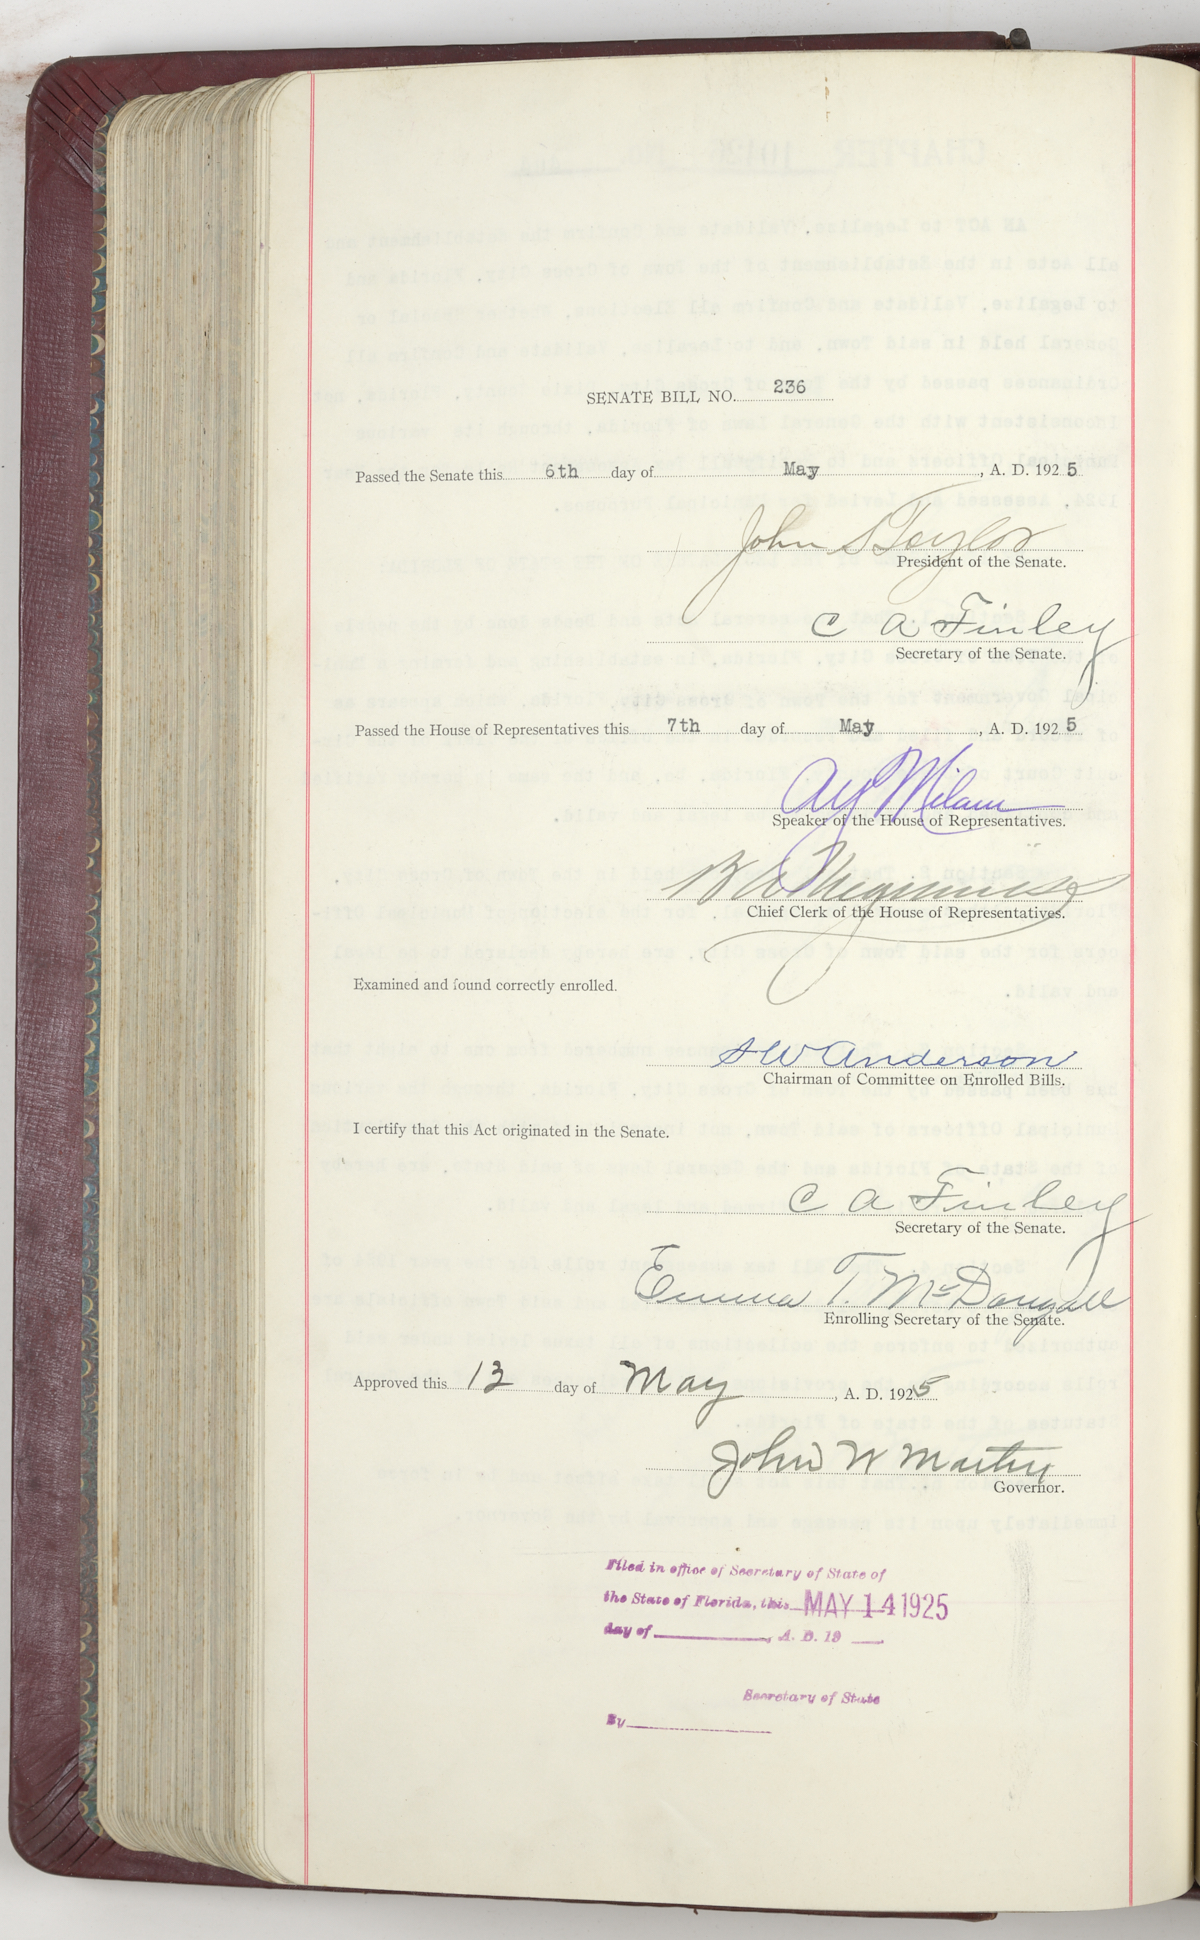 SENATE BILL NO. 236
Passed the Senate this 6th day of May, A. D. 1925
John S Taylor
President of the Senate.
C A Finley
Secretary of the Senate.
Passed the House of Representatives this 7th day of May, A. D. 1925
A Y Milam
Speaker of the House of Representatives.
B A Meginniss
Chief Clerk of the House of Representatives.
Examined and found correctly enrolled.
S W Anderson
Chairman of Committee on Enrolled Bills.
I certify that this Act originated in the Senate.
C A Finley
Secretary of the Senate.
Emma T. McDougall
Enrolling Secretary of the Senate.
Approved this 13 day of May, A. D. 1925
John W Martin
Governor.
Filed in office of Secretary of State of
the State of Florida, this MAY 14 1925
day of , A. D. 19
Secretary of State
By